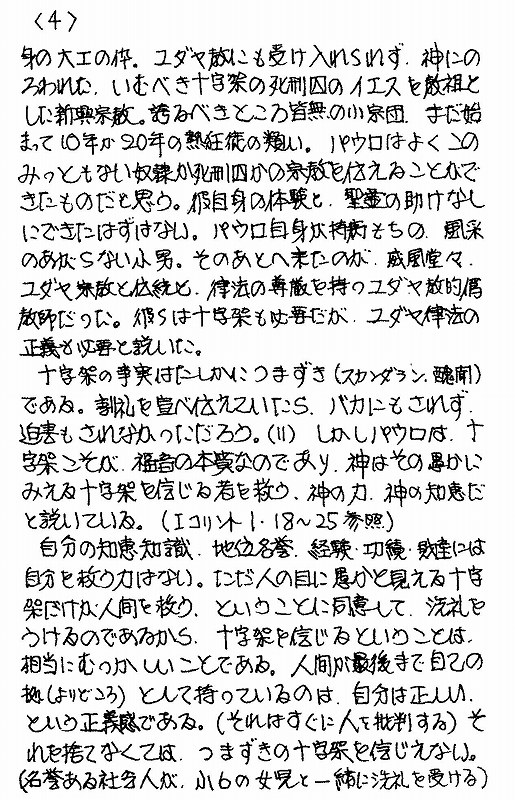 〈4〉
身の大工の伜。ユダヤ教にも受け入れられず、神にの
ろわれた、いむべき十字架の死刑囚のイエスを教祖と
した新興宗教。誇るべきところ皆無の小宗団、まだ始
まって10年か20年の熱狂徒の類い。パウロはよくこの
みっともない奴隷か死刑囚かの宗教を伝えることがで
きたものだと思う。彼自身の体験と、聖霊の助けなし
にできたはずはない。パウロ自身が持病もちの、風采
のあがらない小男。そのあとへ来たのが、威風堂々、
ユダヤ宗教と伝統と、律法の尊厳を持つユダヤ教的偽
教師だった。彼らは十字架も必要だが、ユダヤ律法の
正義も必要と説いた。
十字架の事実はたしかにつまずき(スカンダラン、醜聞)
である。割礼を宣べ伝えていたら、バカにもされず、
迫害もされなかっただろう。(11) しかしパウロは、十
字架こそが、福音の本質なのであり、神はその愚かに
みえる十字架を信じる者を救う、神の力、神の知恵だ
と説いている。(Iコリント1・18〜25参照)
自分の知恵知識、地位名誉、経験・功績・財産には
自分を救う力はない。ただ人の目に愚かと見える十字
架だけが人間を救う、ということに同意して、洗礼を
うけるのであるから、十字架を信じるということは、
相当にむつかしいことである。人間が最後まで自己の
拠(よりどころ)として持っているのは、自分は正しい、
という正義感である。(それはすぐに人を批判する)そ
れを捨てなくては、つまずきの十字架を信じえない。
(名誉ある社会人が、小6の女児と一緒に洗礼を受ける)